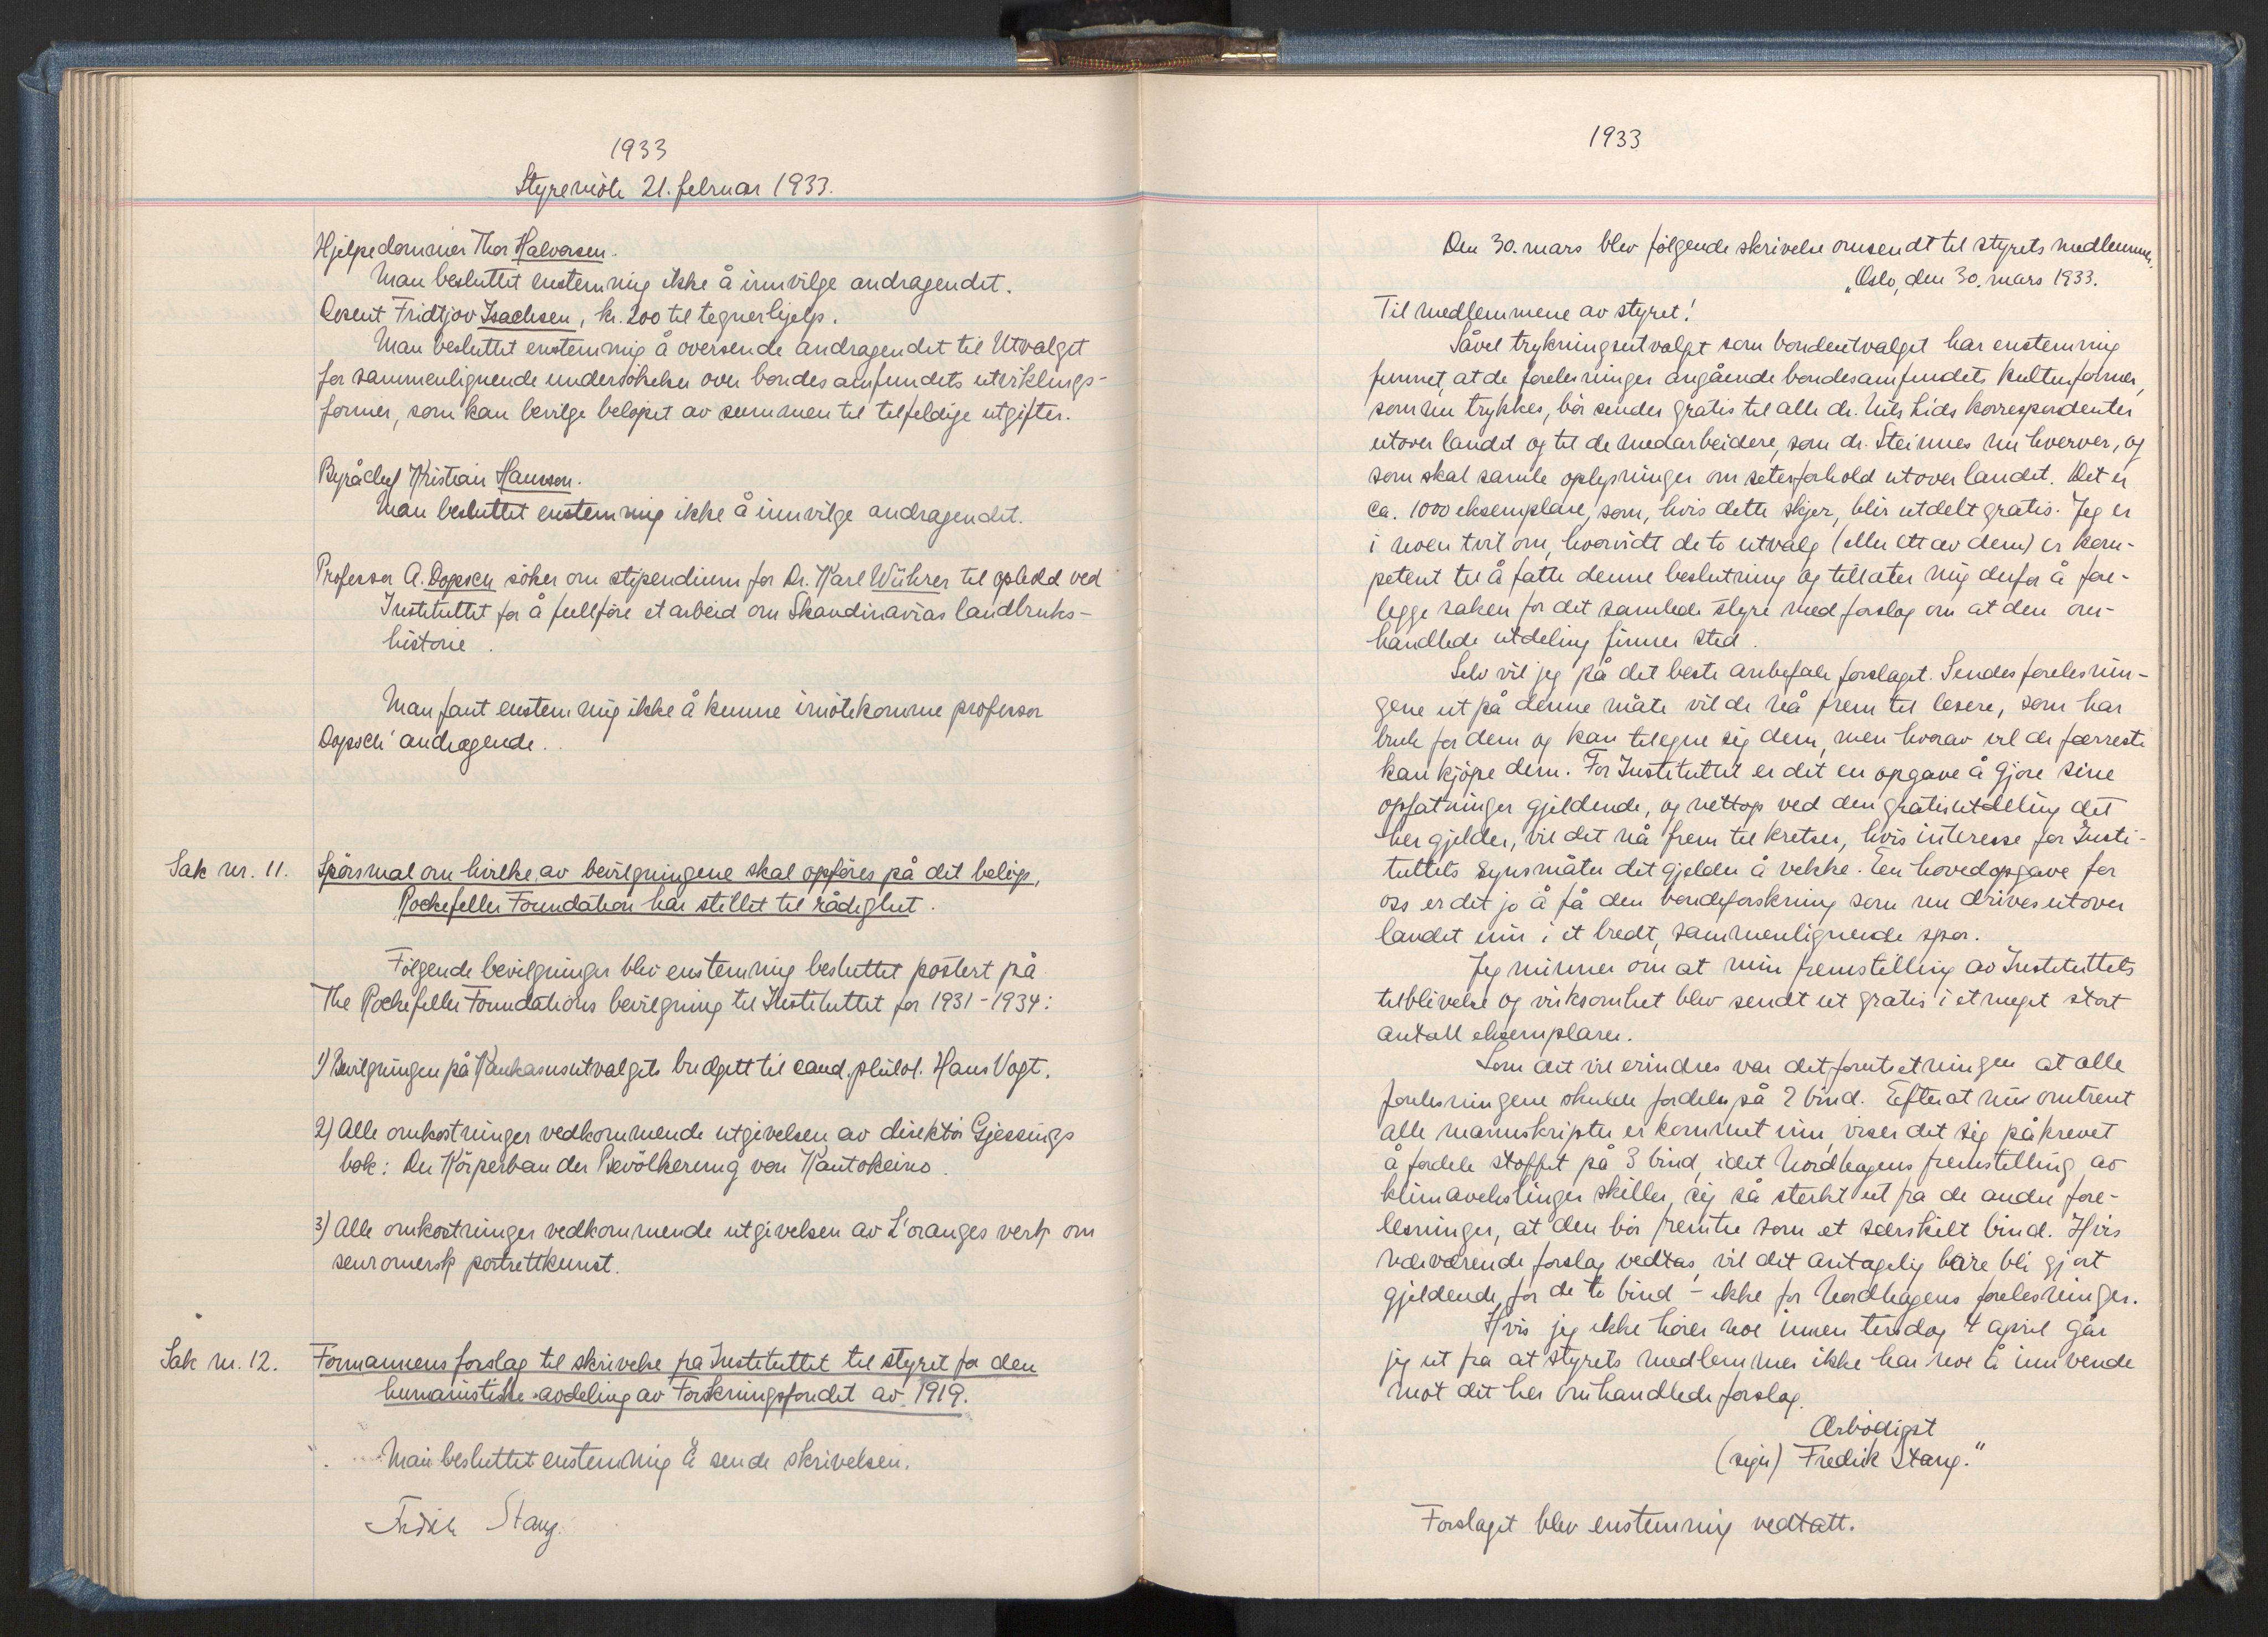 1933
Styremöte 21. februar 1933.
Hjelpedommer Thor Halvorsen.
Man besluttet enstemmig ikke å innvilge andragendet.
Dosent Fridtjov Isachsen, kr. 200 til tegnerhjelp.
Man besluttet enstemmig å oversende andragendet til Utvalget
for sammenlignende undersökelser over bondesamfundets utviklings-
former, som kan bevilge belöpet av summen til tilfeldige utgifter.
Byråchef Kristian Hansson.
Man besluttet enstemmig ikke å innvilge andragendet.
Professor A. Dopsch söker om stipendium for Dr. Karl Wührer til ophold ved
Instituttet for å fullföre et arbeid om Skandinavias landbruks-
historie.
Man fant enstemmig ikke å kunne imötekomme professor
Dopsch' andragende.
Sak nr. 11. Spörsmål om hvilke av bevilgningene skal opföres på det belöp,
Rockefeller Foundation har stillet til rådighet.
Fölgende bevilgninger blev enstemmig besluttet postert på
The Rockefeller Foundations bevilgning til Instituttet for 1931-1934:
1) Bevilgningen på Kaukasusutvalgets budgett til cand. philol. Hans Vogt.
2) Alle omkostninger vedkommende utgivelsen av direktör Gjessings
bok: Der Körperbau der Bevölkerung von Kautokeino.
3) Alle omkostninger vedkommende utgivelsen av L'oranges verk om
senromersk portrettkunst.
Sak nr. 12. Formannens forslag til skrivelse fra Instituttet til styret for den
humanistiske avdeling av Forskningsfondet av 1919.
Man besluttet enstemmig å sende skrivelsen.
Fredrik Stang.
1933
Den 30. mars blev fölgende skrivelse omsendt til styrets medlemmer.
"Oslo, den 30. mars 1933.
Til medlemmene av styret!
Såvel trykningsutvalget som bondeutvalget har enstemmig
funnet, at de forelesninger angående bondesamfundets kulturformer,
som nu trykkes, bör sendes gratis til alle dr. Nils Lids korrespondenter
utover landet og til de medarbeidere, som dr. Steinnes nu hverver, og
som skal samle oplysninger om seterforhold utover landet. Det er
ca. 1000 eksemplarer, som, hvis dette skjer, blir utdelt gratis. Jeg er
i noen tvil om, hvorvidt de to utvalg (eller ett av dem) er kom-
petent til å fatte denne beslutning og tillater mig derfor å fore-
legge saken for det samlede styre med forslag om at den om-
handlede utdeling finner sted.
Selv vil jeg på det beste anbefale forslaget. Sendes forelesnin-
gene ut på denne måte vil de nå frem til lesere, som har
bruk for dem og kan tilegne sig dem, men hvorav vel de færreste
kan kjöpe dem. For Instituttet er det en opgave å gjöre sine
opfatninger gjeldende, og nettop ved den gratisutdeling det
her gjelder, vil det nå frem til kretser, hvis interesse for Insti-
tuttets synsmåter det gjelder å vekke. En hovedopgave for
oss er det jo å få den bondeforskning som nu drives utover
landet inn i et bredt, sammenlignende spor.
Jeg minner om at min fremstilling av Instituttets
tilblivelse og virksomhet blev sendt ut gratis i et meget stort
antall eksemplarer.
Som det vil erindres var det forutsetningen at alle
forelesningene skulde fordeles på 2 bind. Efterat nu omtrent
alle manuskripter er kommet inn, viser det sig påkrevet
å fordele stoffet på 3 bind, idet Nordhagens fremstilling av
klimavekslinger skiller sig så sterkt ut fra de andre fore-
lesninger, at den bör fremtre som et særskilt bind. Hvis
nærværende forslag vedtas, vil det antagelig bare bli gjort
gjeldende for de to bind - ikke for Nordhagens forelesninger.
Hvis jeg ikke hörer noe innen tirsdag 4 april går
jeg ut fra at styrets medlemmer ikke har noe å innvende
mot det her omhandlede forslag.
Ærbödigst
(sign) Fredrik Stang."
Forslaget blev enstemmig vedtatt.